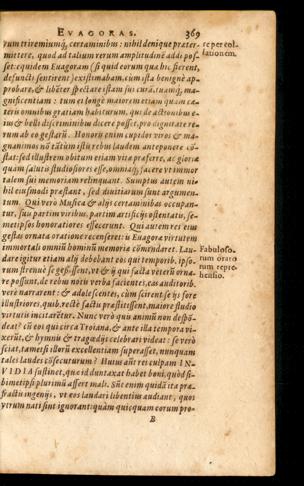 EVAGORAS. 369
rum triremiumq́; certaminibus: nihil denique præter-
mittere, quod ad talium rerum amplitudinē addi pos-
set: equidem Euagoram (si quid eorum quæ hic fierent,
defuncti sentirent) existimabam, cùm ista benignè ap-
probare, & libēter spectare istam sui curā, tuamq́; ma-
gnificentiam: tum ei longè maiorem etiam quàm cæ-
teris omnibus gratiam habiturum, qui de actionibus e-
ius & belli discriminibus dicere posset, pro dignitate re-
rum ab eo gestarū. Honoris enim cupidos viros & ma-
gnanimos nō tātùm istis rebus laudem anteponere cō-
stat: sed illustrem obitum etiam vitæ præferre, ac gloriæ
quàm salutis studiosiores esse, omniaq́; facere vt immor
talem sui memoriam relinquant. Sumptus autem ni-
hil eiusmodi præstant, sed diuitiarum sunt argumen-
tum. Qui verò Musica & alijs certaminibus occupan-
tur, suis partim viribus, partim artificijs ostentatis, se-
metipsos honoratiores essecerunt. Qui autem res eius
gestas ornata oratione recenseret: is Euagoræ virtutem
immortali omniū hominū memoriæ cōmendaret. Lau-
dare igitur etiam alij debebant eos qui temporib. ipso-
rum strenuè se gessissent, vt & ij qui facta veterū orna-
re possunt, de rebus notis verba facientes, eas auditorib.
verè narrarent: & adolescentes, cùm scirent se ijs fore
illustriores, quib. rectè factis præstitissent, maiore studio
virtutis incitarētur. Nunc verò quis animū non despō-
deat? cū eos qui circa Troiana, & ante illa tempora vi-
xerūt, & hymnis & tragœdijs celebrari videat: se verò
sciat, tametsi illorū excellentiam superasset, nunquam
tales laudes cōsecuturum? Huius aūt rei culpam IN-
VIDIA sustinet, quæ id duntaxat habet boni, quòd si-
bimetipsi plurimū affert mali. Sūt enim quidā ita præ-
fractis ingenijs, vt eos laudari libentius audiant, quos
vtrum nati sint ignorant: quàm quicquam eorum pro-
B
re per col-
lationem.
Fabuloso-
rum orato
rum repre-
hensio.